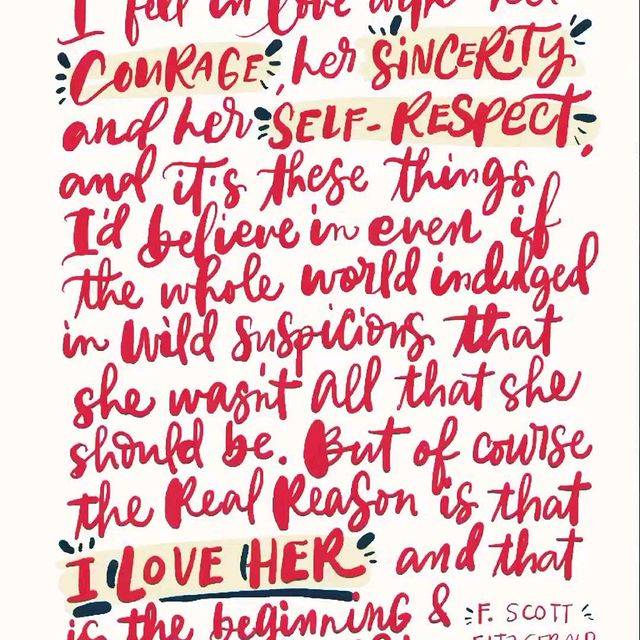 I fell in love with her
COURAGE, her SINCERITY
and her SELF-RESPECT,
and it's these things
I'd believe in even if
the whole world indulged
in wild suspicions that
she wasn't all that she
should be. But of course
the Real Reason is that
I LOVE HER and that
is the beginning &
F. SCOTT
FITZGERALD